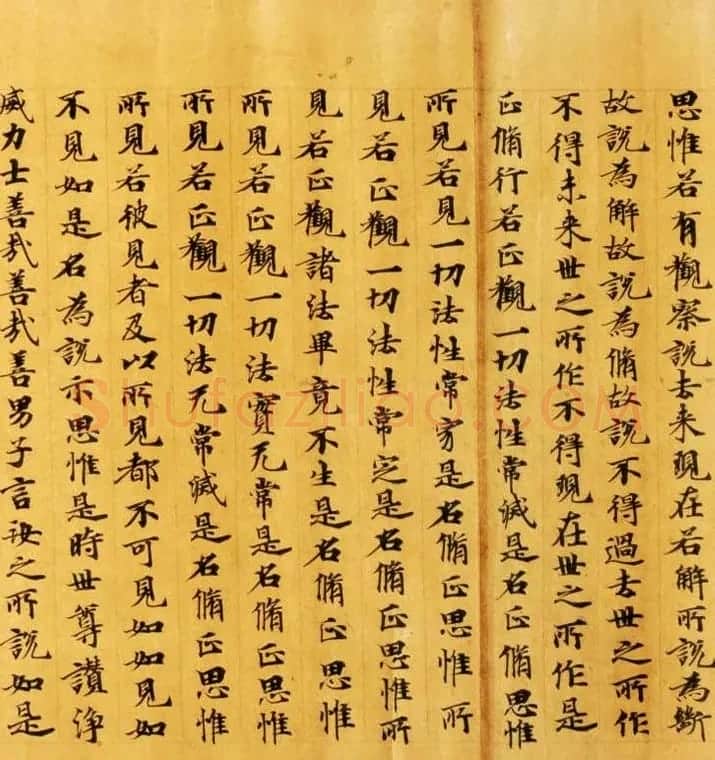 思惟若有觀察說去来現在若解所說為斷
故說為解故說為脩故說不得過去世之所作
不得未来世之所作不得現在世之所作是
正脩行若正觀一切法性常滅是名正脩思惟
所見若見一切法性常寂是名脩正思惟所
見若正觀一切法性常定是名脩正思惟所
見若正觀諸法畢竟不生是名脩正思惟
所見若正觀一切法實无常是名脩正思惟
所見若正觀一切法无常滅是名脩正思惟
所見若彼見者及以所見都不可見如如見如
不見如是名為說示思惟是時世尊讚淨
威力士善哉善哉善男子言汝之所說如是
Shufaziliao.COM